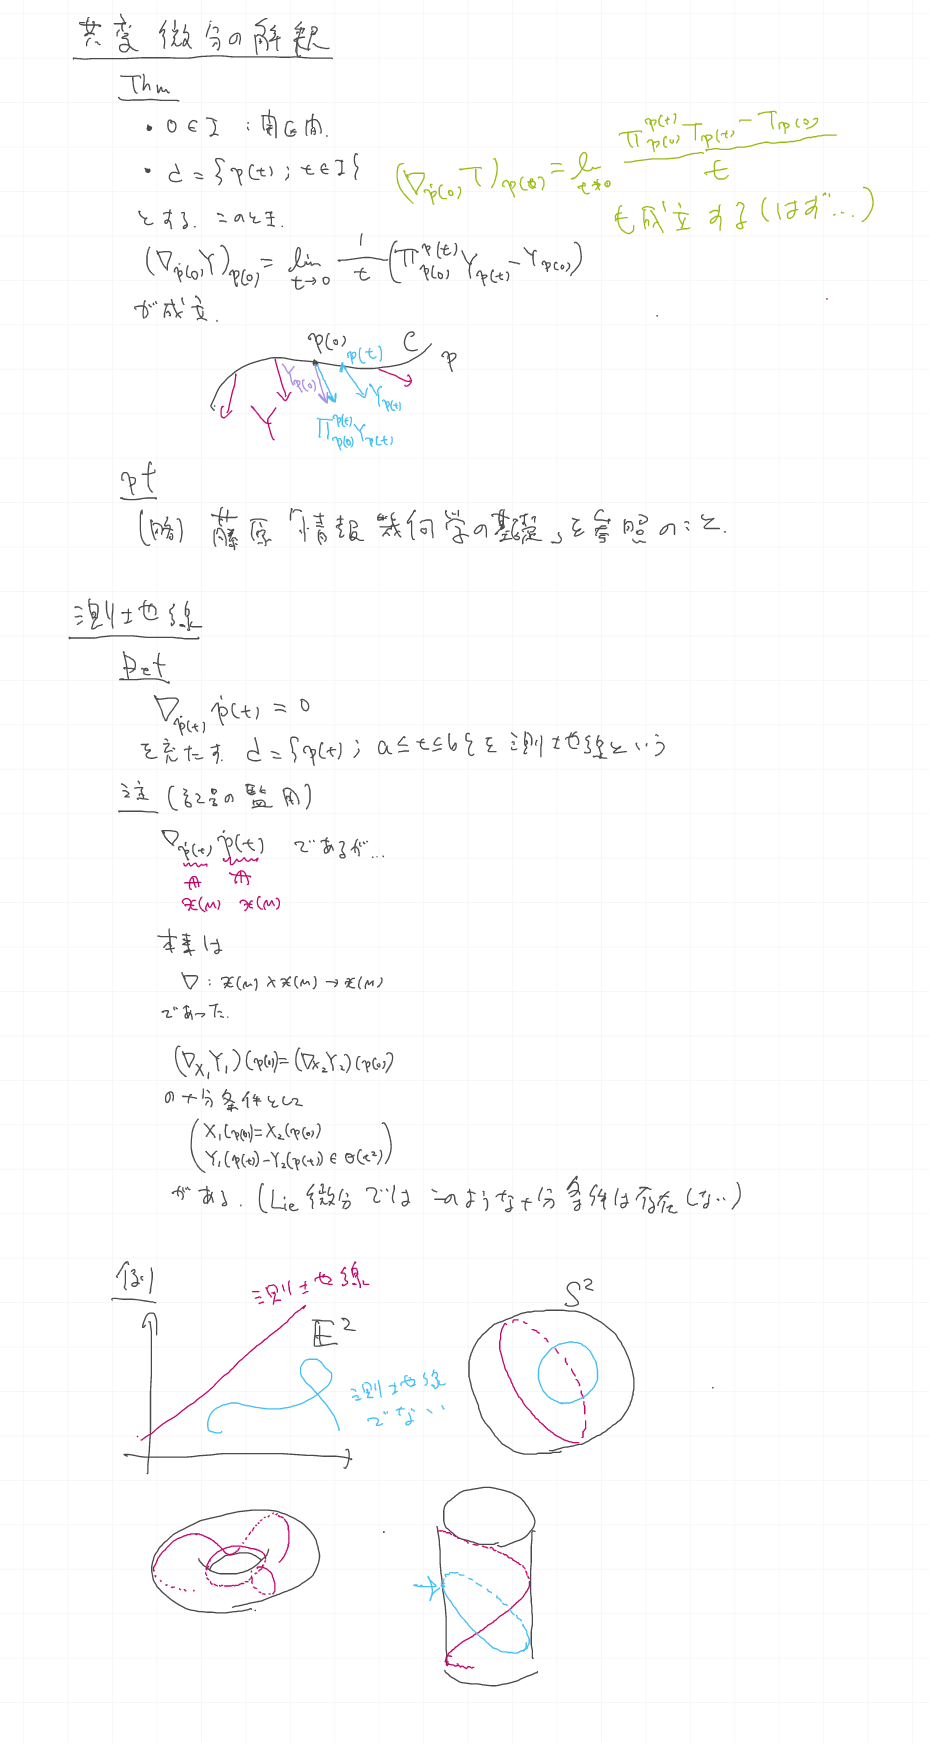 共変微分の解釈
Thm
・0∈I : 開区間.
・C = {p(t) ; t∈I}
とする. このとき.
(∇_{ṗ(0)}Y)_{p(0)} = lim_{t→0} 1/t (Π_{p(0)}^{p(t)} Y_{p(t)} - Y_{p(0)})
が成立.
(∇_{ṗ(0)}T)_{p(0)} = lim_{t→0} (Π_{p(0)}^{p(t)} T_{p(t)} - T_{p(0)}) / t
も成立する(はず…)
p(0) C
p(t) p
Y_{p(0)} Y_{p(t)}
Y Π_{p(0)}^{p(t)} Y_{p(t)}
pf
(略) 藤原「情報幾何学の基礎」を参照のこと.
測地線
Def
∇_{ṗ(t)} ṗ(t) = 0
を充たす C = {p(t) ; a≤t≤b}を測地線という
注 (記号の濫用)
∇_{ṗ(t)} ṗ(t) であるが…
𝔛(M) 𝔛(M)
本来は
∇ : 𝔛(M) × 𝔛(M) → 𝔛(M)
であった.
(∇_{X₁}Y₁)(p(0)) = (∇_{X₂}Y₂)(p(0))
の十分条件として
X₁(p(0)) = X₂(p(0))
Y₁(p(t)) - Y₂(p(t)) ∈ O(t²)
がある. (Lie微分ではこのような十分条件は存在しない)
例
測地線
E²
測地線
でない
S²